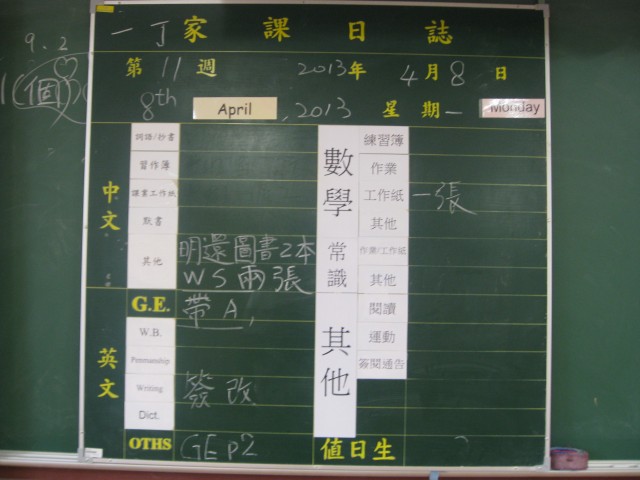 一丁家課日誌
9.2
第11週 2013年 4月8日
個
8th April, 2013 星期一 Monday
中文
詞語/抄書
習作簿
課業工作紙
默書
其他 明還圖書2本
WS兩張
英文
G.E. 帶A,
W.B.
Penmanship
Writing 簽改
Dict.
OTHS GE p2
數學
練習簿
作業
工作紙 一張
其他
常識
作業/工作紙
其他
其他
閱讀
運動
簽閱通告
值日生